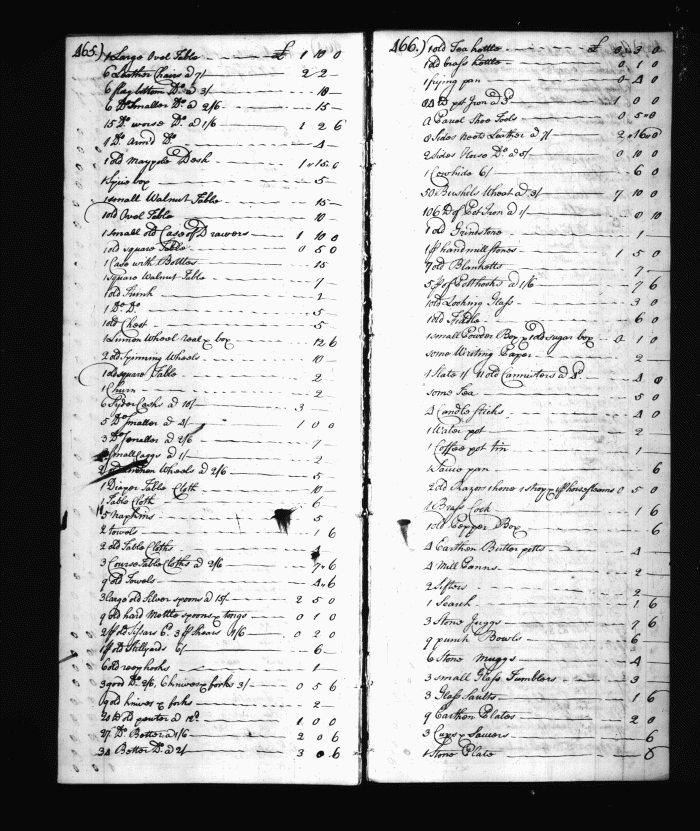 465.) 1 Large Oval Table £ 1 10 0
6 Leather Chairs @ 7/ 2 2 -
6 flag bottom Do @ 3/ 18 -
6 Do Smaller Do @ 2/6 15 -
15 Do worse Do @ 1/6 1 2 6
1 Do Arm'd Do 4 -
1 old Maypole Desk 1 15 0
box 5 -
1 small Walnut Table 15 -
1 old Oval Table 10 -
1 Small old Case of Drawers 1 10 0
1 old square Table 0 5 0
1 Case with Bottles 15
1 Square Walnut Table 7
1 old Trunk 2
1 Do Do 5
1 old Chest 5
1 Linnen Wheel reel & box 12 6
2 old Spinning Wheels 10 -
1 old square Table 2
1 Churn 2
6 Syder Casks @ 10/ 3
5 Do smaller @ 4/ 1 0 0
3 Do smaller @ 2/6 7
Small Caggs @ 1/ 2
2 Linnen Wheels @ 2/6 5
1 Diaper Table Cloth 10
1 Table Cloth 6
5 Napkins 5
2 towels 1 6
2 old Table Cloths
3 Course Table Cloths @ 2/6 7 6
9 old Towels 4 6
3 large old Silver spoons @ 15/ 2 5 0
9 old hard Mettle spoons & tongs 0 1 0
2 pr old Sisars 6d 3 pr Shears 1/6 0 2 0
1 pr old Stillyards 6/ 6 -
6 old reap hooks 1 -
3 good Do 2/6, 6 knives & forks 3/ 0 5 6
9 old knives & forks 2 -
20 lb old pewter @ 12d 1 0 0
27 Do Better @ 1/6 2 0 6
34 Better Do @ 2/ 3 6
466.) 1 old Tea kettle £ 0 3 0
1 old brass kettle 0 1 0
1 frying pan 0 4 0
lb pot Iron @ 3d 1 0 0
A Parcel Shoe Tools 0 5 0
8 Sides neats Leather @ 7/ 2 16 0
2 Sides Horse Do @ 5/ 0 10 0
1 Cowhide 6/ 6 0
50 Bushels Wheat @ 3/ 7 10 0
106 lb of Pot Iron @ 1/ 0 10
1 old Grindstone 1
1 pr hand mill stones 1 5 0
7 old Blanketts 7 -
5 pr of Pott hooks @ 1/6 7 6
1 old Looking Glass 3 0
1 old Fiddle 6 0
1 small Powder Box & 1 old sugar box 0 1 0
some Writing Paper 2
1 Slate 1/ 11 old Cannisters @ 3d 4 0
some Tea 5 0
4 Candle sticks 4 0
1 Water pot 2
1 Coffee pot tin 1
1 Sauce pan 6
2 old Razors 1 hone 1 strop & 1 pr horse fleams 0 5 0
1 Brass Cock 1 6
1 old Pepper Box 6
4 Earthen Butter potts 4
4 Milk Panns 2
2 Sifters 2
1 Searsh 1 6
3 Stone Juggs 7 6
9 punch Bowls 6
6 Stone Muggs 4
3 small Glass Tumblers 3
3 Glass Saults 1 6
9 Earthen Plates 2 0
3 Cups & Saucers 6
1 Stone Plate 6